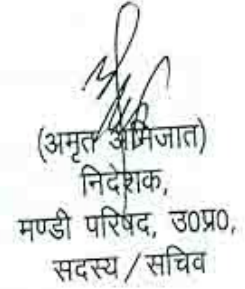 (अमृत अभिजात)
निदेशक,
मण्डी परिषद, उ0प्र0,
सदस्य / सचिव